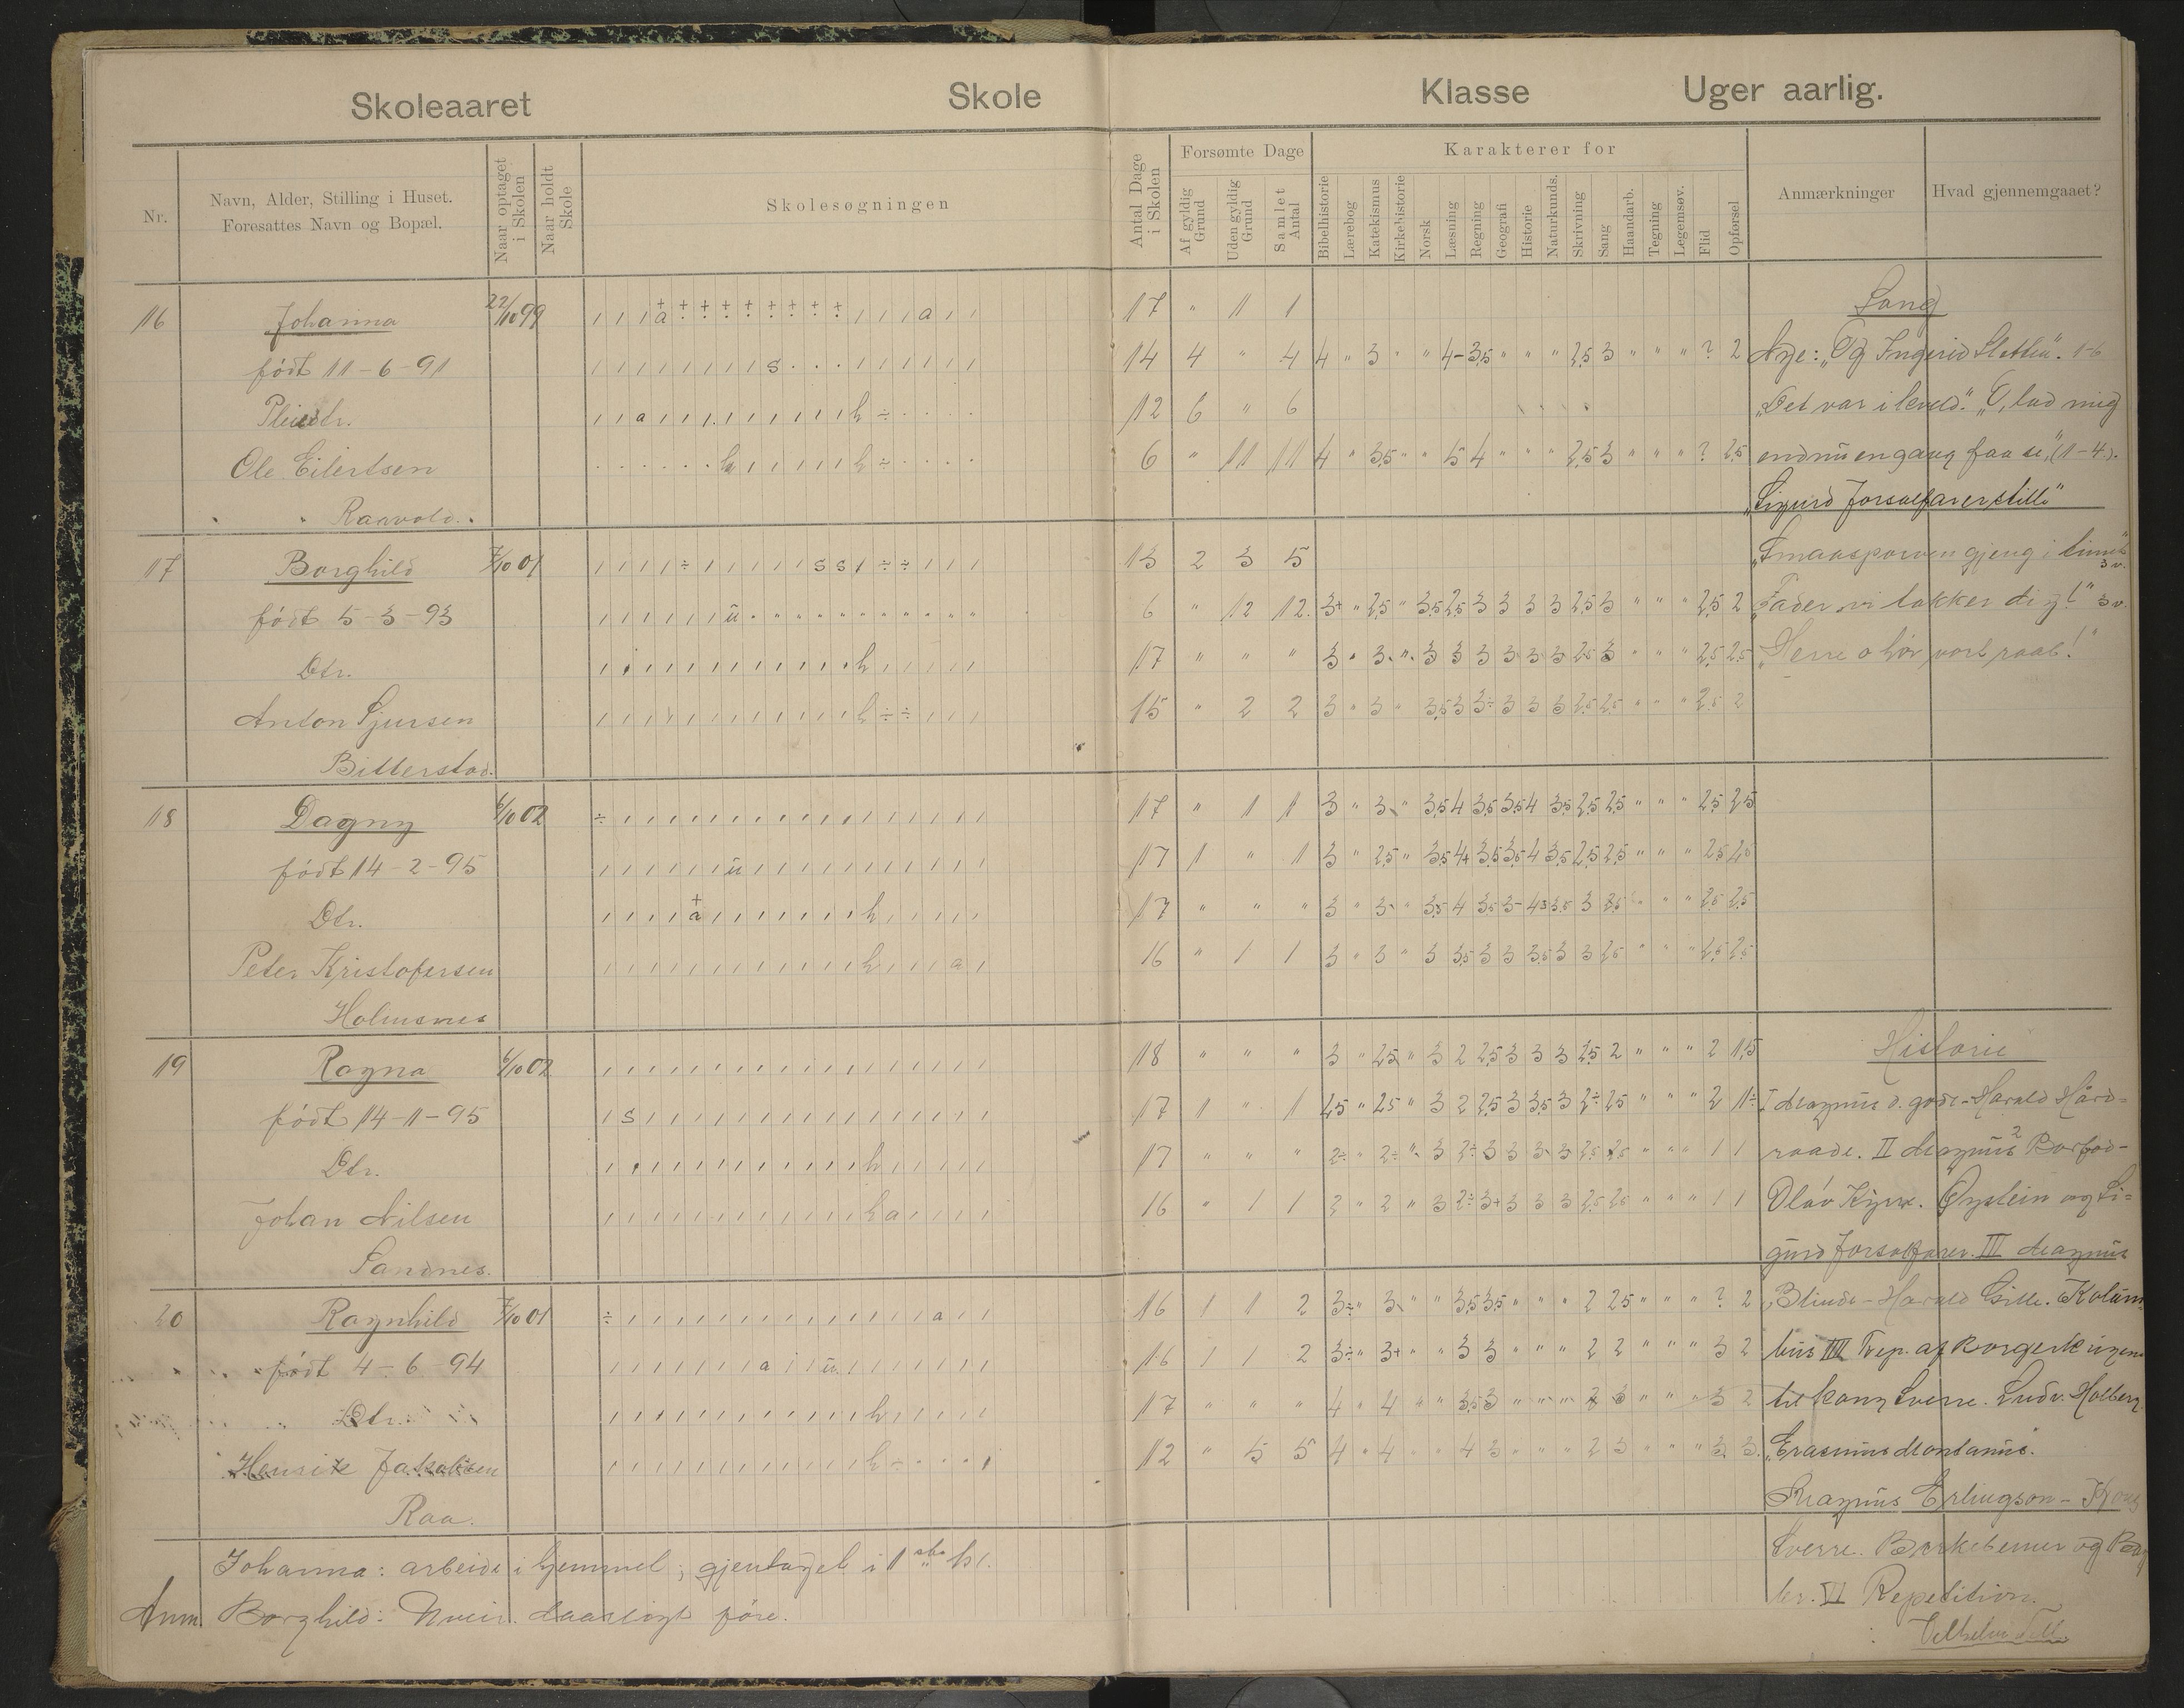 Skoleaaret Skole Klasse Uger aarlig.
Nr. Navn, Alder, Stilling i Huset. Foresattes Navn og Bopæl. Naar optaget i Skolen Naar holdt Skole Skolesøgningen Antal Dage i Skolen Forsømte Dage Karakterer for Anmærkninger Hvad gjennemgaaet?
Af gyldig Grund Uden gyldig Grund Samlet Antal Bibelhistorie Lærebog Katekismus Kirkehistorie Norsk Læsning Regning Geografi Historie Naturkunds. Skrivning Sang Haandarb. Tegning Legemsøv. Flid Opførsel
16 Johanna 22/10 99 17 " 1 1 Sang
født 11-6-91 14 4 " 4 4 " 3 " " 4- 3,5 " " " 2,5 3 " " " ? 2 Nye: "Og Ingerid Sletten". 1-6
12 6 " 6 "Det var i kveld." "O, lad mig
Ole Eilertsen 6 " 11 11 4 " 3,5 " " 5 4 " " " 2,5 3 " " " ? 2,5 endnu engang faa se", (1-4).
"Sigurd Jorsalfarerstille"
17 Borghild 7/10 01 13 2 3 5 "Smaasporven gjeng i tunet" 3 v.
født 5-3-93 6 " 12 12 3+ " 2,5 " 3,5 2,5 3 3 3 3 2,5 3 " " " 2,5 2 "Fader vi takker dig!" 3 v.
Dtr. 17 " " " 3 " 3 " 3 3 3 3 3 3 2,5 3 " " " 2,5 2,5 "Herre o hør vort raab!"
Anton Sjursen 15 " 2 2 3 " 3 " 3,5 3 3÷ 3 3 3 2,5 2,5 " " " 2,5 2
Bitterstad.
18 Dagny 6/10 02 17 " 1 1 3 " 3 " 3,5 4 3,5 3,5 4 3,5 2,5 2,5 " " " 2,5 2,5
født 14-2-95 17 1 " 1 3 " 2,5 " 3,5 4+ 3,5 3,5 4 3,5 2,5 2,5 " " " 2,5 2,5
Dtr. 17 " " " 3 " 3 " 3,5 4 3,5 3- 3 2,5 " " " 2,5 2,5
Peter Kristofersen 16 " 1 1 3 " 3 " 3 3,5 3 3 3,5 3 3 2,5 " " " 2,5 2,5
Holmsnes
19 Ragna 6/10 02 18 " " " 3 " 2,5 " 3 2 2,5 3 3 3 2,5 2 " " " 2 1,5 Historie
født 14-11-95 17 1 " 1 2,5 " 2,5 " 3 2 2,5 3 3,5 3 2÷ 2,5 " " " 2 1÷ I Magnus d. gode - Harald Hård=
Dtr. 17 " " " 2÷ " 2÷ " 3 2÷ 3 3 3 3 2,5 2,5 " " " 1 1 raade. II Magnus 2 Barfod-
Johan Nilsen 16 " 1 1 2 " 2 " 3 2÷ 3+ 3 3 3 2,5 2,5 " " " 1 1 Olav Kyrre. Øystein og Si=
Sandnes. gurd Jorsalfarer. III Magnus
20 Ragnhild 7/10 01 16 1 1 2 3÷ " 3 " " 3,5 3,5 " " " 2 2,5 " " " ? 2 Blinde - Harald Gille. Kolum
født 4-6-94 16 1 1 2 3÷ " 3+ " " 3 3 " " " 2 2 " " " 3 2 bus IIII Rep. af Borgerkrigene
Dtr. 17 " " " 4 " 4 " " 3,5 3 " " " 2 3 " " " 3 2 til kong Sverre. Ludv. Holberg
Henrik Jakobsen 12 " 5 5 4 " 4 " " 4 3 " " " 2 3 " " " 3 3. "Erasmus Montanus.
Raa. Magnus Erlingson - Kong
Johanna: arbeide i hjemmet; gjentaget i 1ste kl. Sverre. Birkebener og Bag
Anm. Borghild: Uveir. daarligt føre. ler. VI Repetition.
Vilhelm Tell.